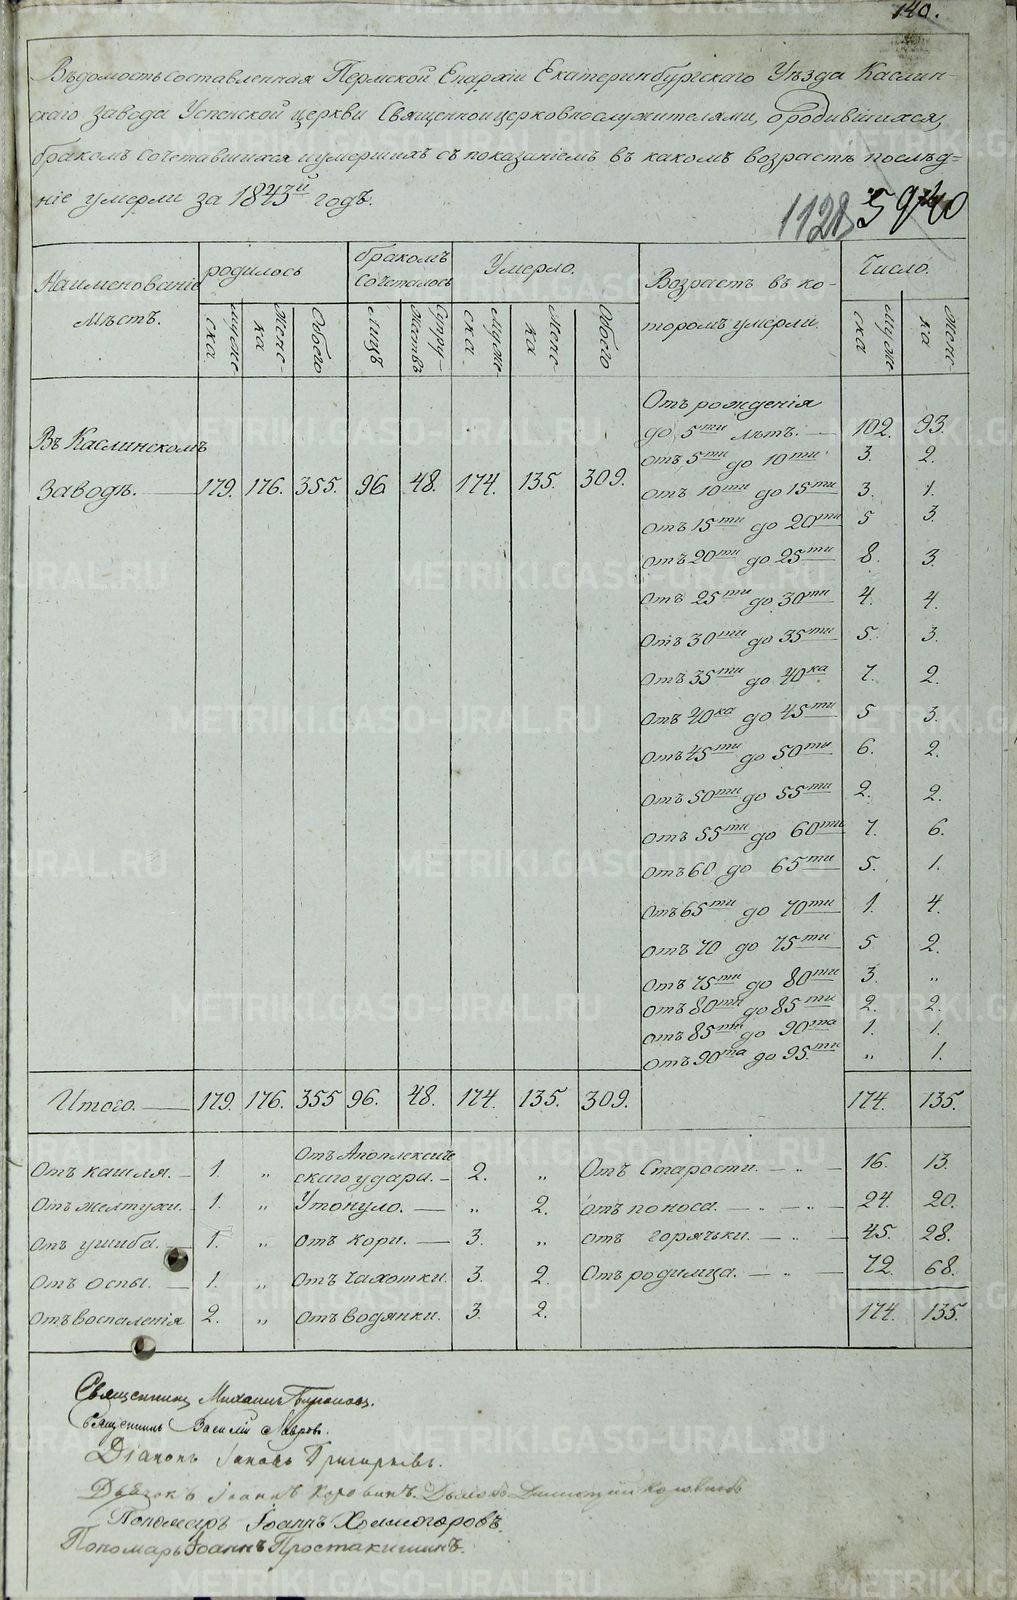 140.
Вѣдомость составленная Пермской Епархіи Екатеринбургскаго Уѣзда Каслин-
скаго завода Успенской церкви Священноицерковнослужителями, ородившихся,
бракомъ сочетавшихся иумершихъ съ показаніемъ въ какомъ возрастѣ послѣд-
ніе умерли за 1843й годъ.
1128
Наименованіе Мѣстъ.
родилось
бракомъ сочеталось
Умерло.
Возрастъ въ ко-
торомъ умерли.
Число.
Муже-
ска.
Женс-
ка
Обоего
Лицъ
Супру-
жествъ
Муже-
ска.
Женс-
ка
Обоего
Муже-
ска
Женс-
ка.
Въ Каслинскомъ
заводѣ. 179. 176. 355. 96 48. 174. 135. 309.
Отъ рожденія
до 5ти лѣтъ. 102. 93.
отъ 5ти до 10ти 3. 2.
отъ 10ти до 15ти 3. 1.
отъ 15ти до 20ти 5 3.
отъ 20ти до 25ти 8. 3.
отъ 25ти до 30ти 4. 4.
отъ 30ти до 35ти 5. 3.
отъ 35ти до 40ка 7. 2.
отъ 40ка до 45ти 5 3.
отъ 45ти до 50ти 6. 2.
отъ 50ти до 55ти 2. 2.
отъ 55ти до 60ти 7. 6.
отъ 60 до 65ти 5. 1.
отъ 65ти до 70ти 1. 4.
отъ 70 до 75ти 5 2.
отъ 75ти до 80ти 3. „
отъ 80ти до 85ти 2. 2.
отъ 85ти до 90та 1. 1.
отъ 90та до 95ти „ 1.
Итого. 179. 176. 355 96. 48. 174. 135. 309. 174. 135.
Отъ кашля. 1. „ Отъ Апоплексиче
скаго удара. 2. „ Отъ Старости. 16. 13.
Отъ желтухи. 1. „ Утонуло. „ 2. отъ поноса. 24. 20.
отъ ушиба. 1. „ отъ кори. 3. „ отъ горячьки. 45. 28.
отъ оспы. 1. „ отъ чахотки. 3. 2. Отъ родимца. 72. 68.
отъ воспаленія 2. „ отъ водянки. 3. 2. 174. 135.
Священникъ Михаилъ
Священникъ Василій Лавровъ.
Діаконъ Іаковъ Григорьевъ.
Дьячокъ Іоаннъ Коровинъ.
Пономарь Іоаннъ Холмогоровъ.
Пономарь Іоаннъ Простакишинъ.
METRIKI.GASO-URAL.RU